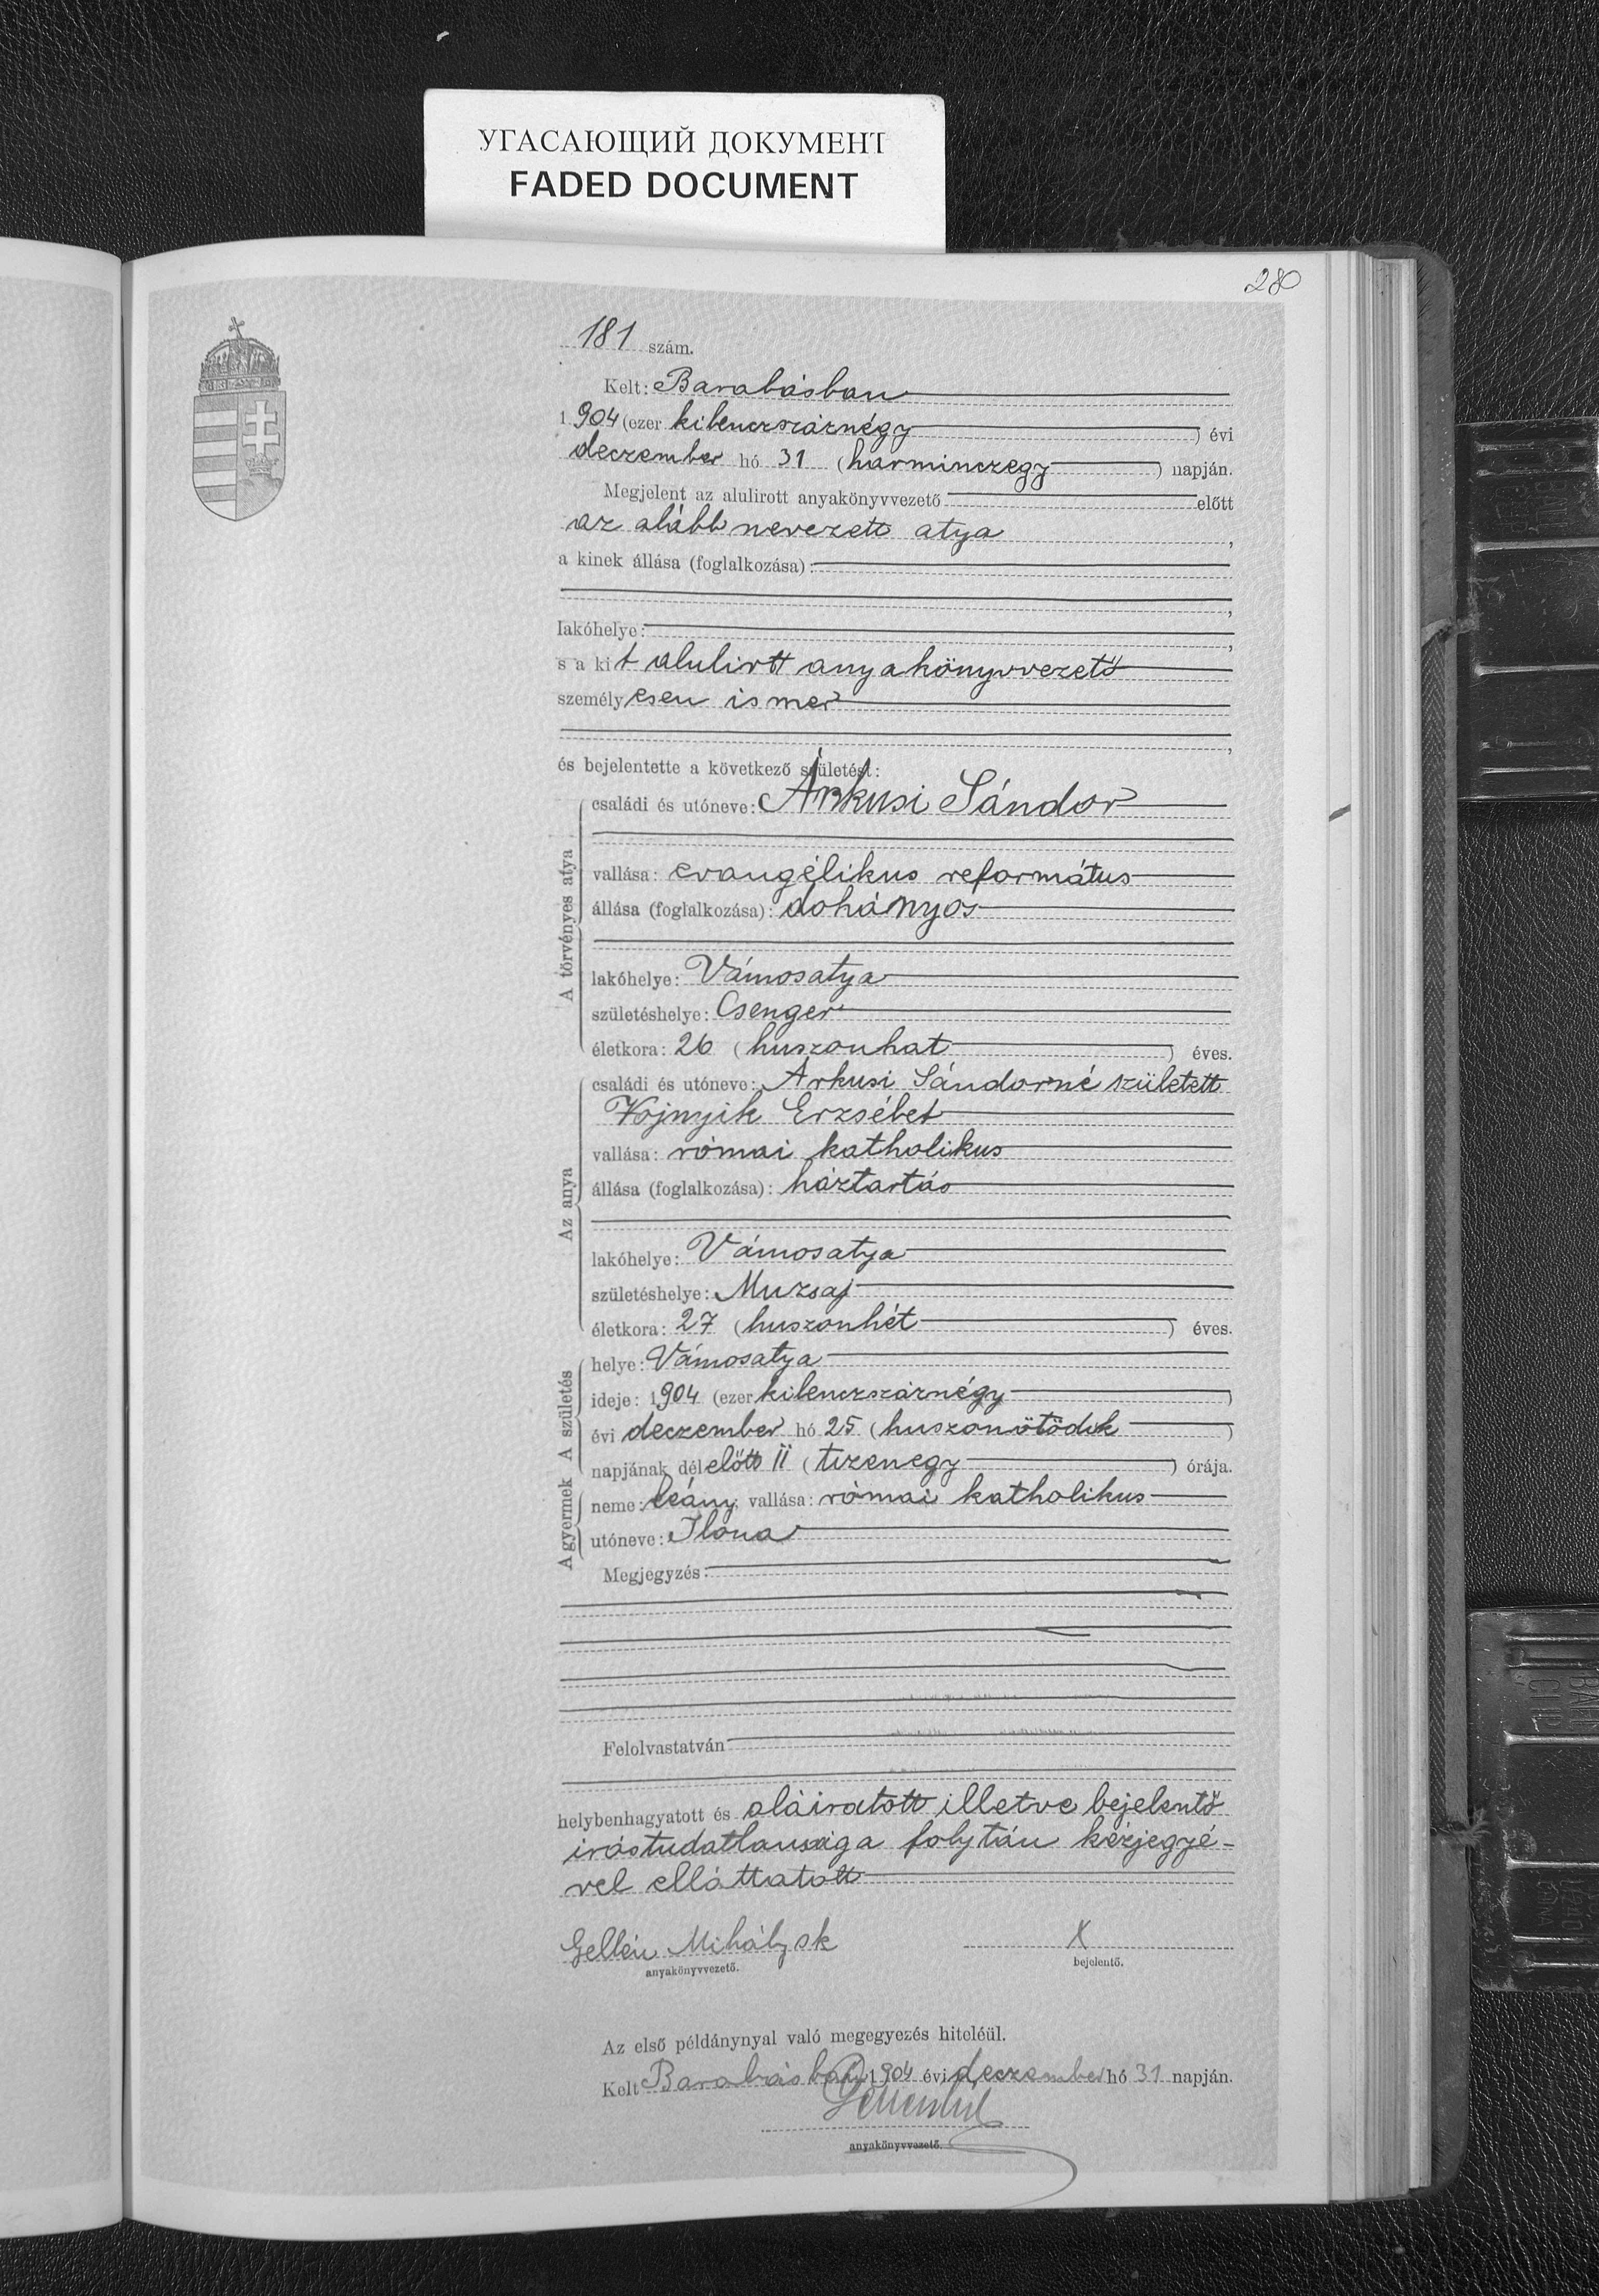 УГАСАЮЩИЙ ДОКУМЕНТ
FADED DOCUMENT
280
181 szám.
Kelt: Barabásban
1904 (ezer kilenczszáznégy) évi
deczember hó 31 (harminczegy) napján.
Megjelent az alulirott anyakönyvvezető előtt
az alább nevezett atya,
a kinek állása (foglalkozása):
,
lakóhelye: ,
s a kit alulirtt anyakönyvvezető
személyesen ismer
,
és bejelentette a következő születést:
A törvényes atya
családi és utóneve: Árkusi Sándor
vallása: evangélikus református
állása (foglalkozása): dohányos
lakóhelye: Vámosatya
születéshelye: Csenger
életkora: 26 (huszonhat) éves.
Az anya
családi és utóneve: Árkusi Sándorné született
Vojnyik Erzsébet
vallása: római katholikus
állása (foglalkozása): háztartás
lakóhelye: Vámosatya
születéshelye: Muzsaj
életkora: 27 (huszonhét) éves.
A születés
helye: Vámosatya
ideje: 1904 (ezer kilenczszáznégy)
évi deczember hó 25 (huszonötödik)
napjának délelőtt 11 (tizenegy) órája.
A gyermek
neme: leány, vallása: római katholikus
utóneve: Ilona
Megjegyzés:
Felolvastatván
helybenhagyatott és aláiratott illetve bejelentő
irástudatlansága folytán kézjegyé-
vel elláttatott
Gellén Mihály sk X
anyakönyvvezető. bejelentő.
Az első példánynyal való megegyezés hiteléül.
Kelt Barabásban 1904 évi deczember hó 31 napján.
anyakönyvvezető.